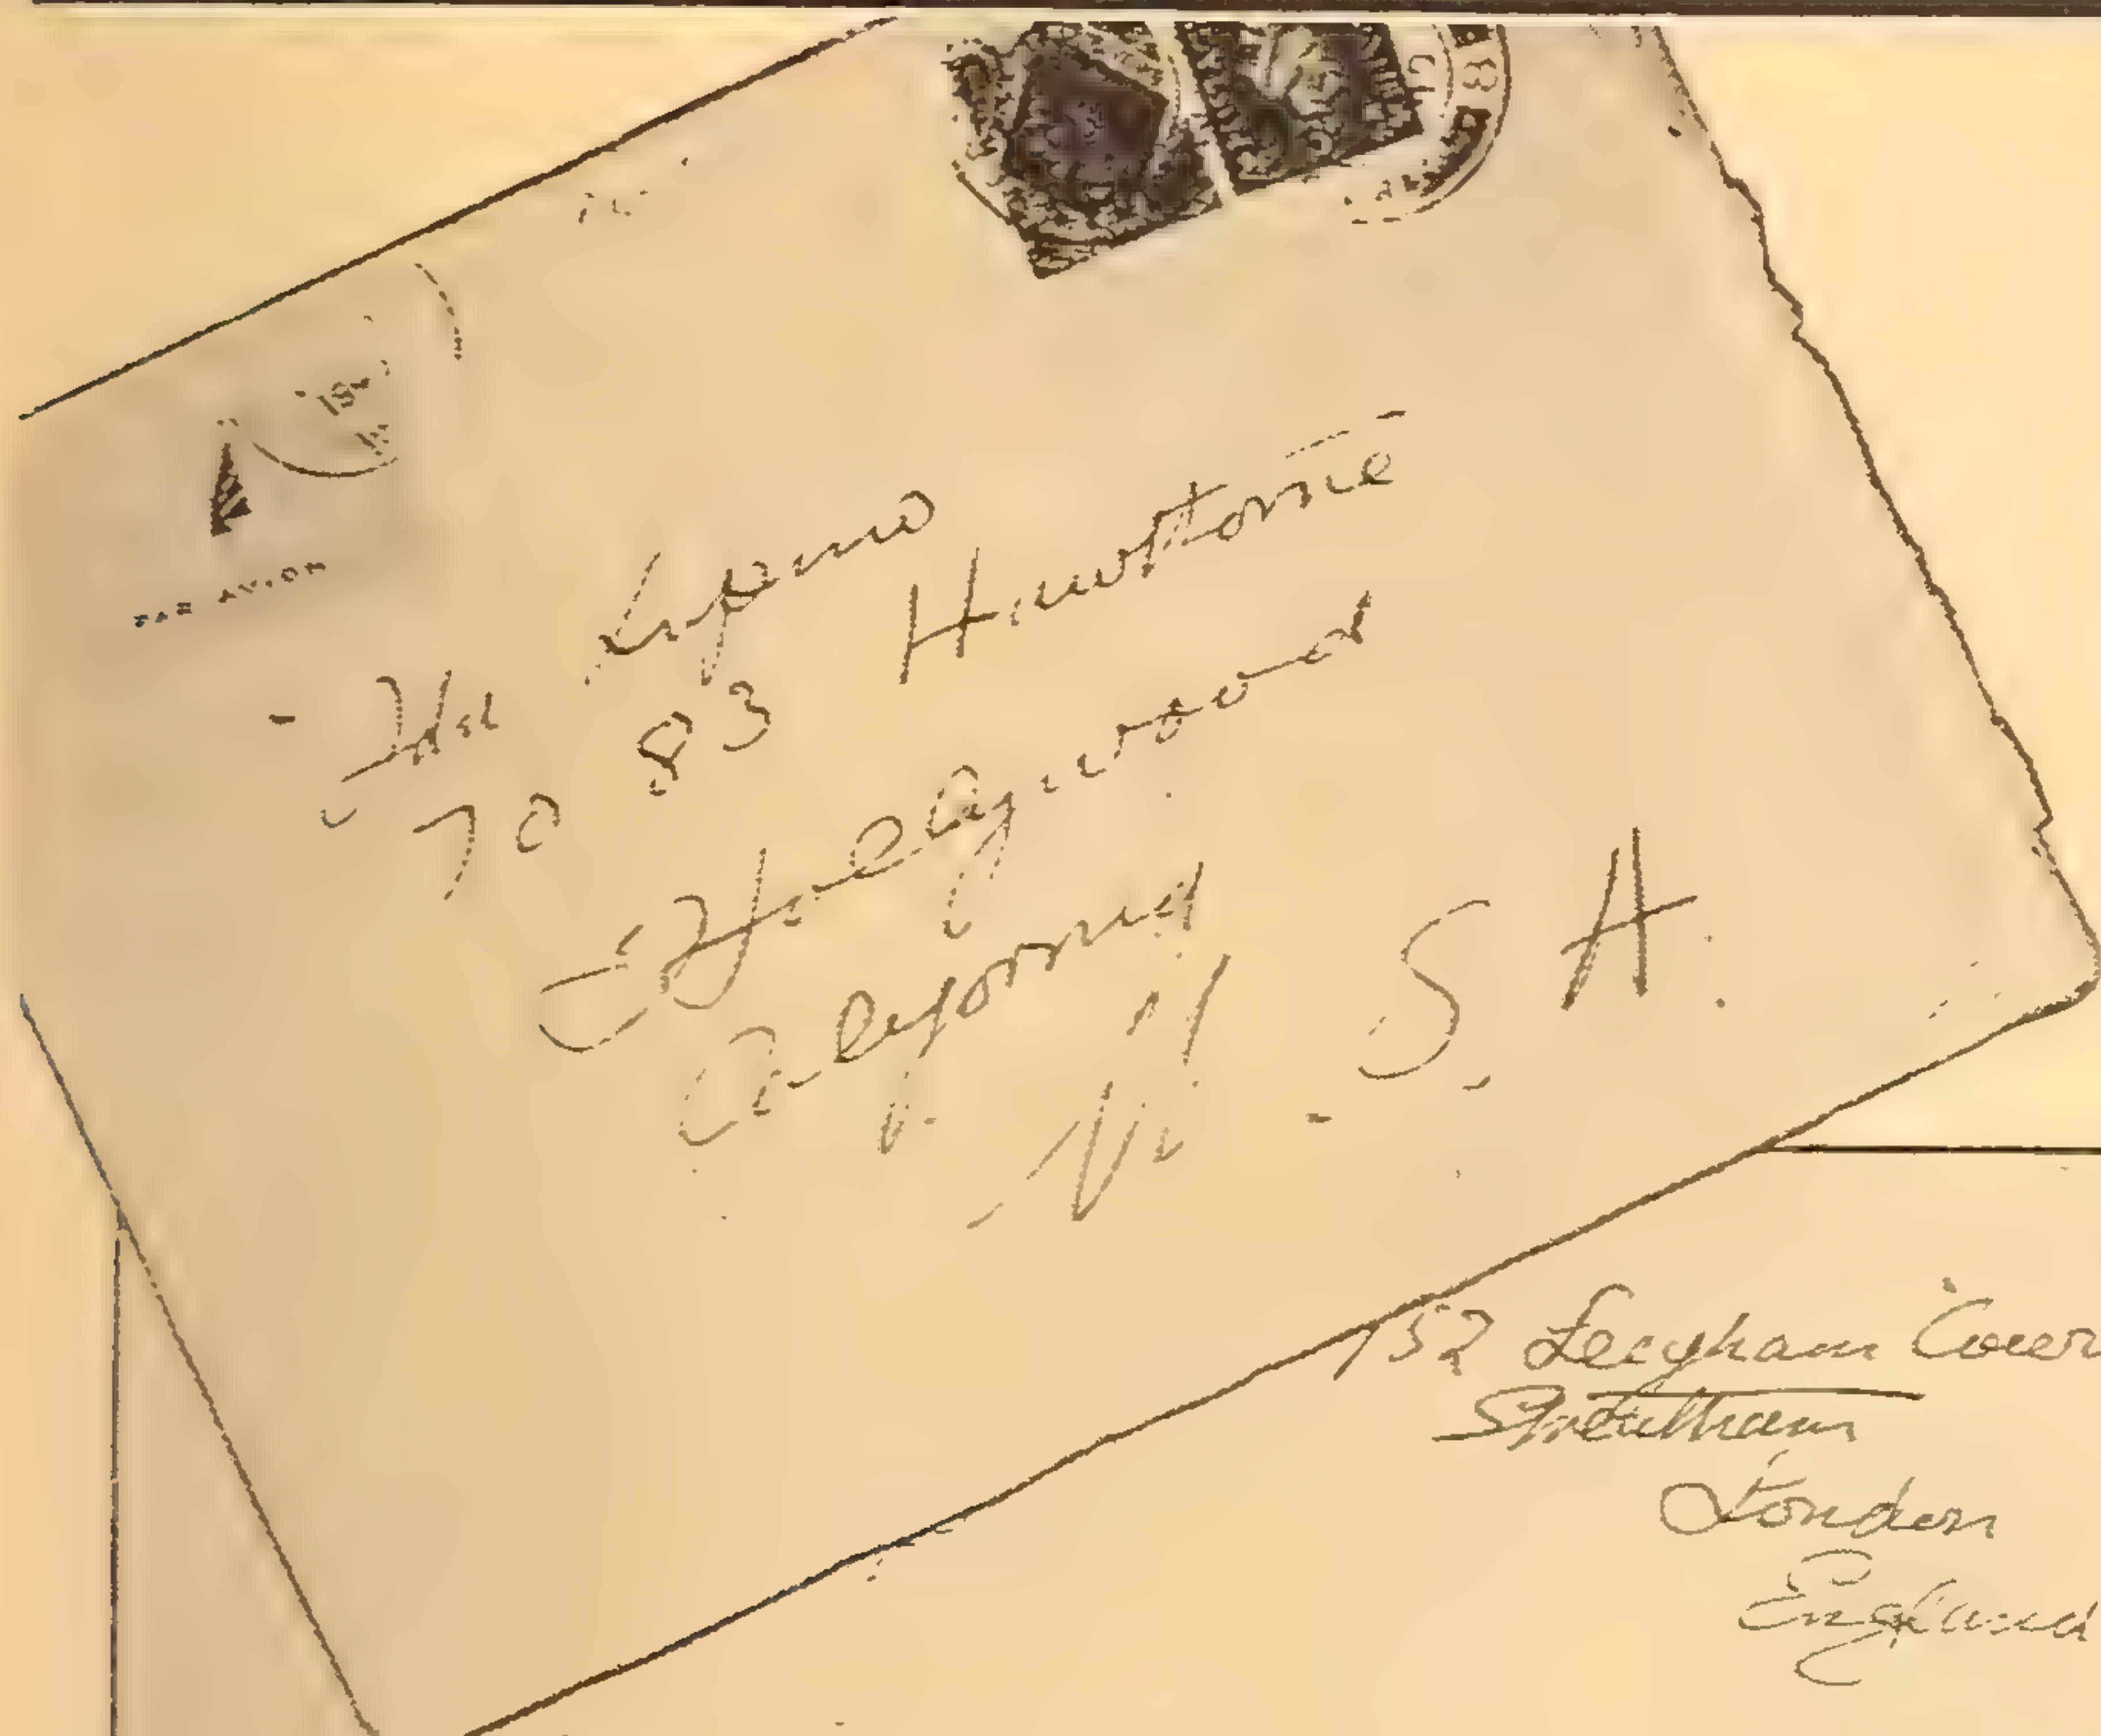 PAR AVION
Ida Lupino
7083 Hawtorne
Hollywood
California
U. S. A.
152 Leigham Cour
Streatham
London
England